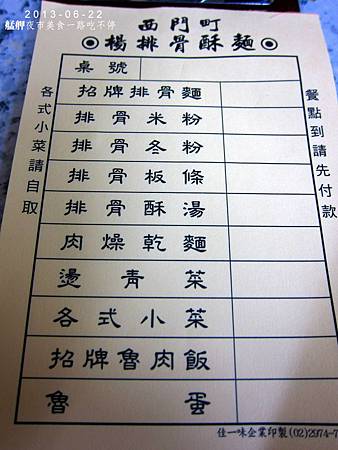 2013-06-22
艋舺夜市美食一路吃不停
西門町
◎楊排骨酥麵◎
桌號
招牌排骨麵
排骨米粉
排骨冬粉
排骨板條
排骨酥湯
肉燥乾麵
燙青菜
各式小菜
招牌魯肉飯
魯蛋
各式小菜請自取
餐點到請先付款
佳一味企業印製(02)2974-7